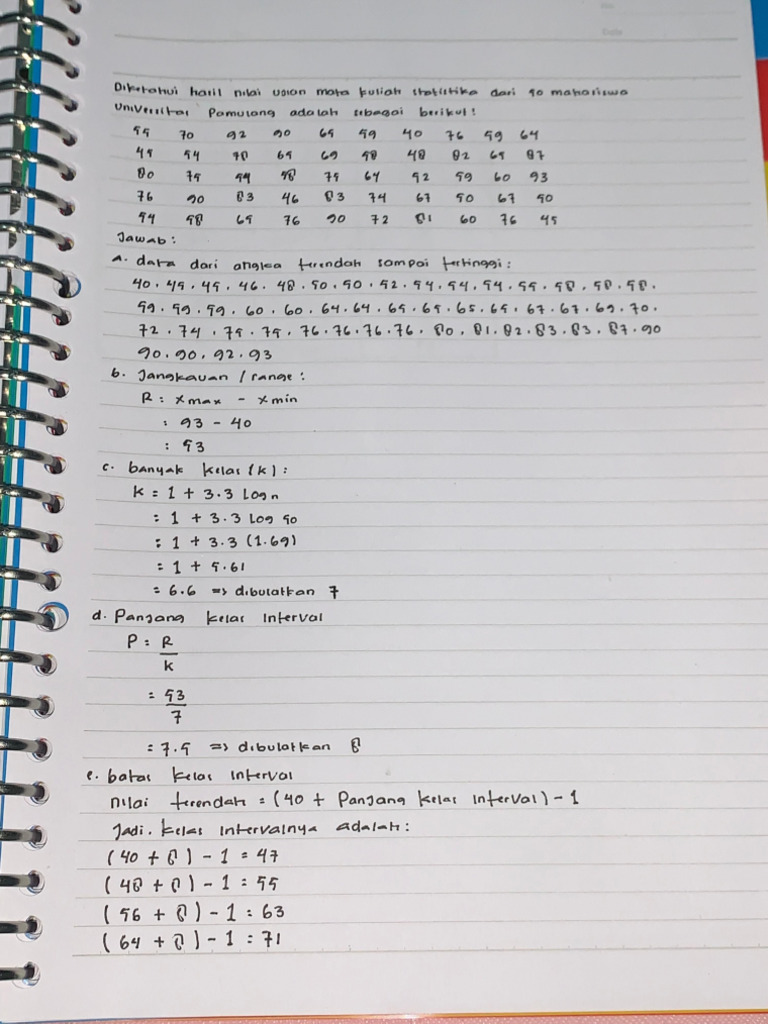 Diketahui hasil nilai ujian mata kuliah statistika dari 50 mahasiswa
Universitas Pamulang adalah sebagai berikut:
55 70 92 90 65 59 40 76 59 64
45 54 70 65 69 58 48 82 65 87
80 75 54 58 75 64 52 59 60 93
76 90 83 46 83 74 67 50 67 50
54 58 65 76 90 72 81 60 76 45
Jawab:
a. data dari angka terendah sampai tertinggi:
40. 45. 45. 46. 48. 50. 50. 52. 54. 54. 54. 55. 58. 58. 58.
59. 59. 59. 60. 60. 64. 64. 65. 65. 65. 65. 67. 67. 69. 70.
72. 74. 75. 75. 76. 76. 76. 76. 80. 81. 82. 83. 83. 87. 90
90. 90. 92. 93
b. Jangkauan / range:
R: xmax - xmin
: 93 - 40
: 53
c. banyak kelas (k):
k = 1 + 3.3 Log n
= 1 + 3.3 Log 50
= 1 + 3.3 (1.69)
= 1 + 5.61
= 6.6 => dibulatkan 7
d. Panjang kelas interval
P = R
k
= 53
7
= 7.5 => dibulatkan 8
e. batas kelas interval
nilai terendah = (40 + Panjang kelas interval) - 1
Jadi. kelas intervalnya adalah:
(40 + 8) - 1 = 47
(48 + 8) - 1 = 55
(56 + 8) - 1 = 63
(64 + 8) - 1 = 71